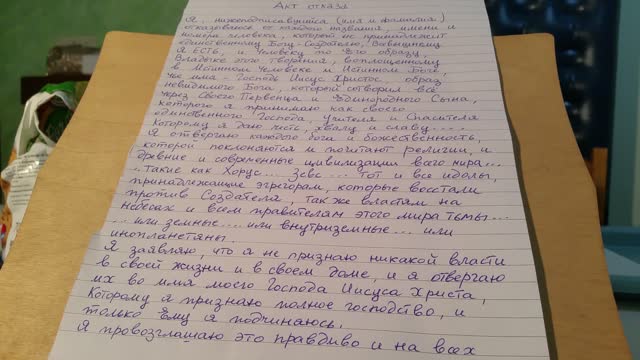 Акт отказа
Я, нижеподписавшийся (имя и фамилия)
отказываюсь от каждого названия, имени и
номера человека, которой не принадлежит
единственному Богу-Создателю, Всевышнему
Я ЕСТЬ, и Человеку по Его образу,
Владычке этом творения, воплощенному
в Истинном Человеке и Истинном Боге,
чьё имя - Господь Иисус Христос, образ
невидимого Бога, который сотворил всё
через Своего Первенца и Единородного Сына,
которого я принимаю как своего
единственного Господа, учителя и Спасителя
Которому я даю честь, хвалу и славу.....
Я отвергаю каждого бога и божественность,
которой поклоняются и почитают религии, и
древние и современные цивилизации всего мира...
...такие как Хорус... Зевс... Тот и все идолы,
принадлежащие эгрегорам, которые восстали
против Создателя, также властям на
небесах и всем правителям этого мира тьмы...
... или земные... или внутриземные... или
инопланетяны.
Я заявляю, что я не признаю никакой власти
в своей жизни и в своем доме, и я отвергаю
их во имя моего Господа Иисуса Христа,
Которому я признаю полное господство, и
только Ему я подчиняюсь.
Я провозглашаю это правдиво и на всех